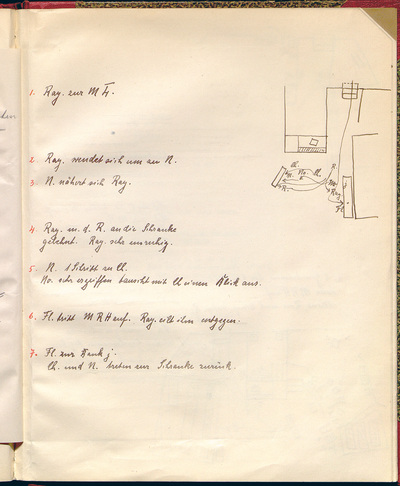 1. Ray. zur M
2. Ray. wendet sich um an N.
3. N. nähert sich Ray.
4. Ray. m. d. R. an die Schranke
gelehnt. Ray. sehr unruhig.
5. N. 1 Schritt zu Ch.
No. sehr ergriffen tauscht mit Ch einen Blick aus.
6. Fl. tritt M R H auf. Ray. eilt ihm entgegen.
7. Fl. zur Bank j.
Ch. und N. treten zur Schranke zurück.